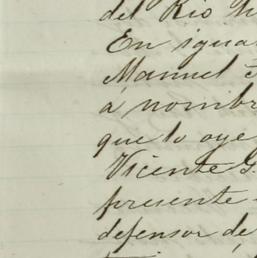 del Rio
En igua
Manuel
a nombr
que lo oye
Vicente G.
presente
defensor de